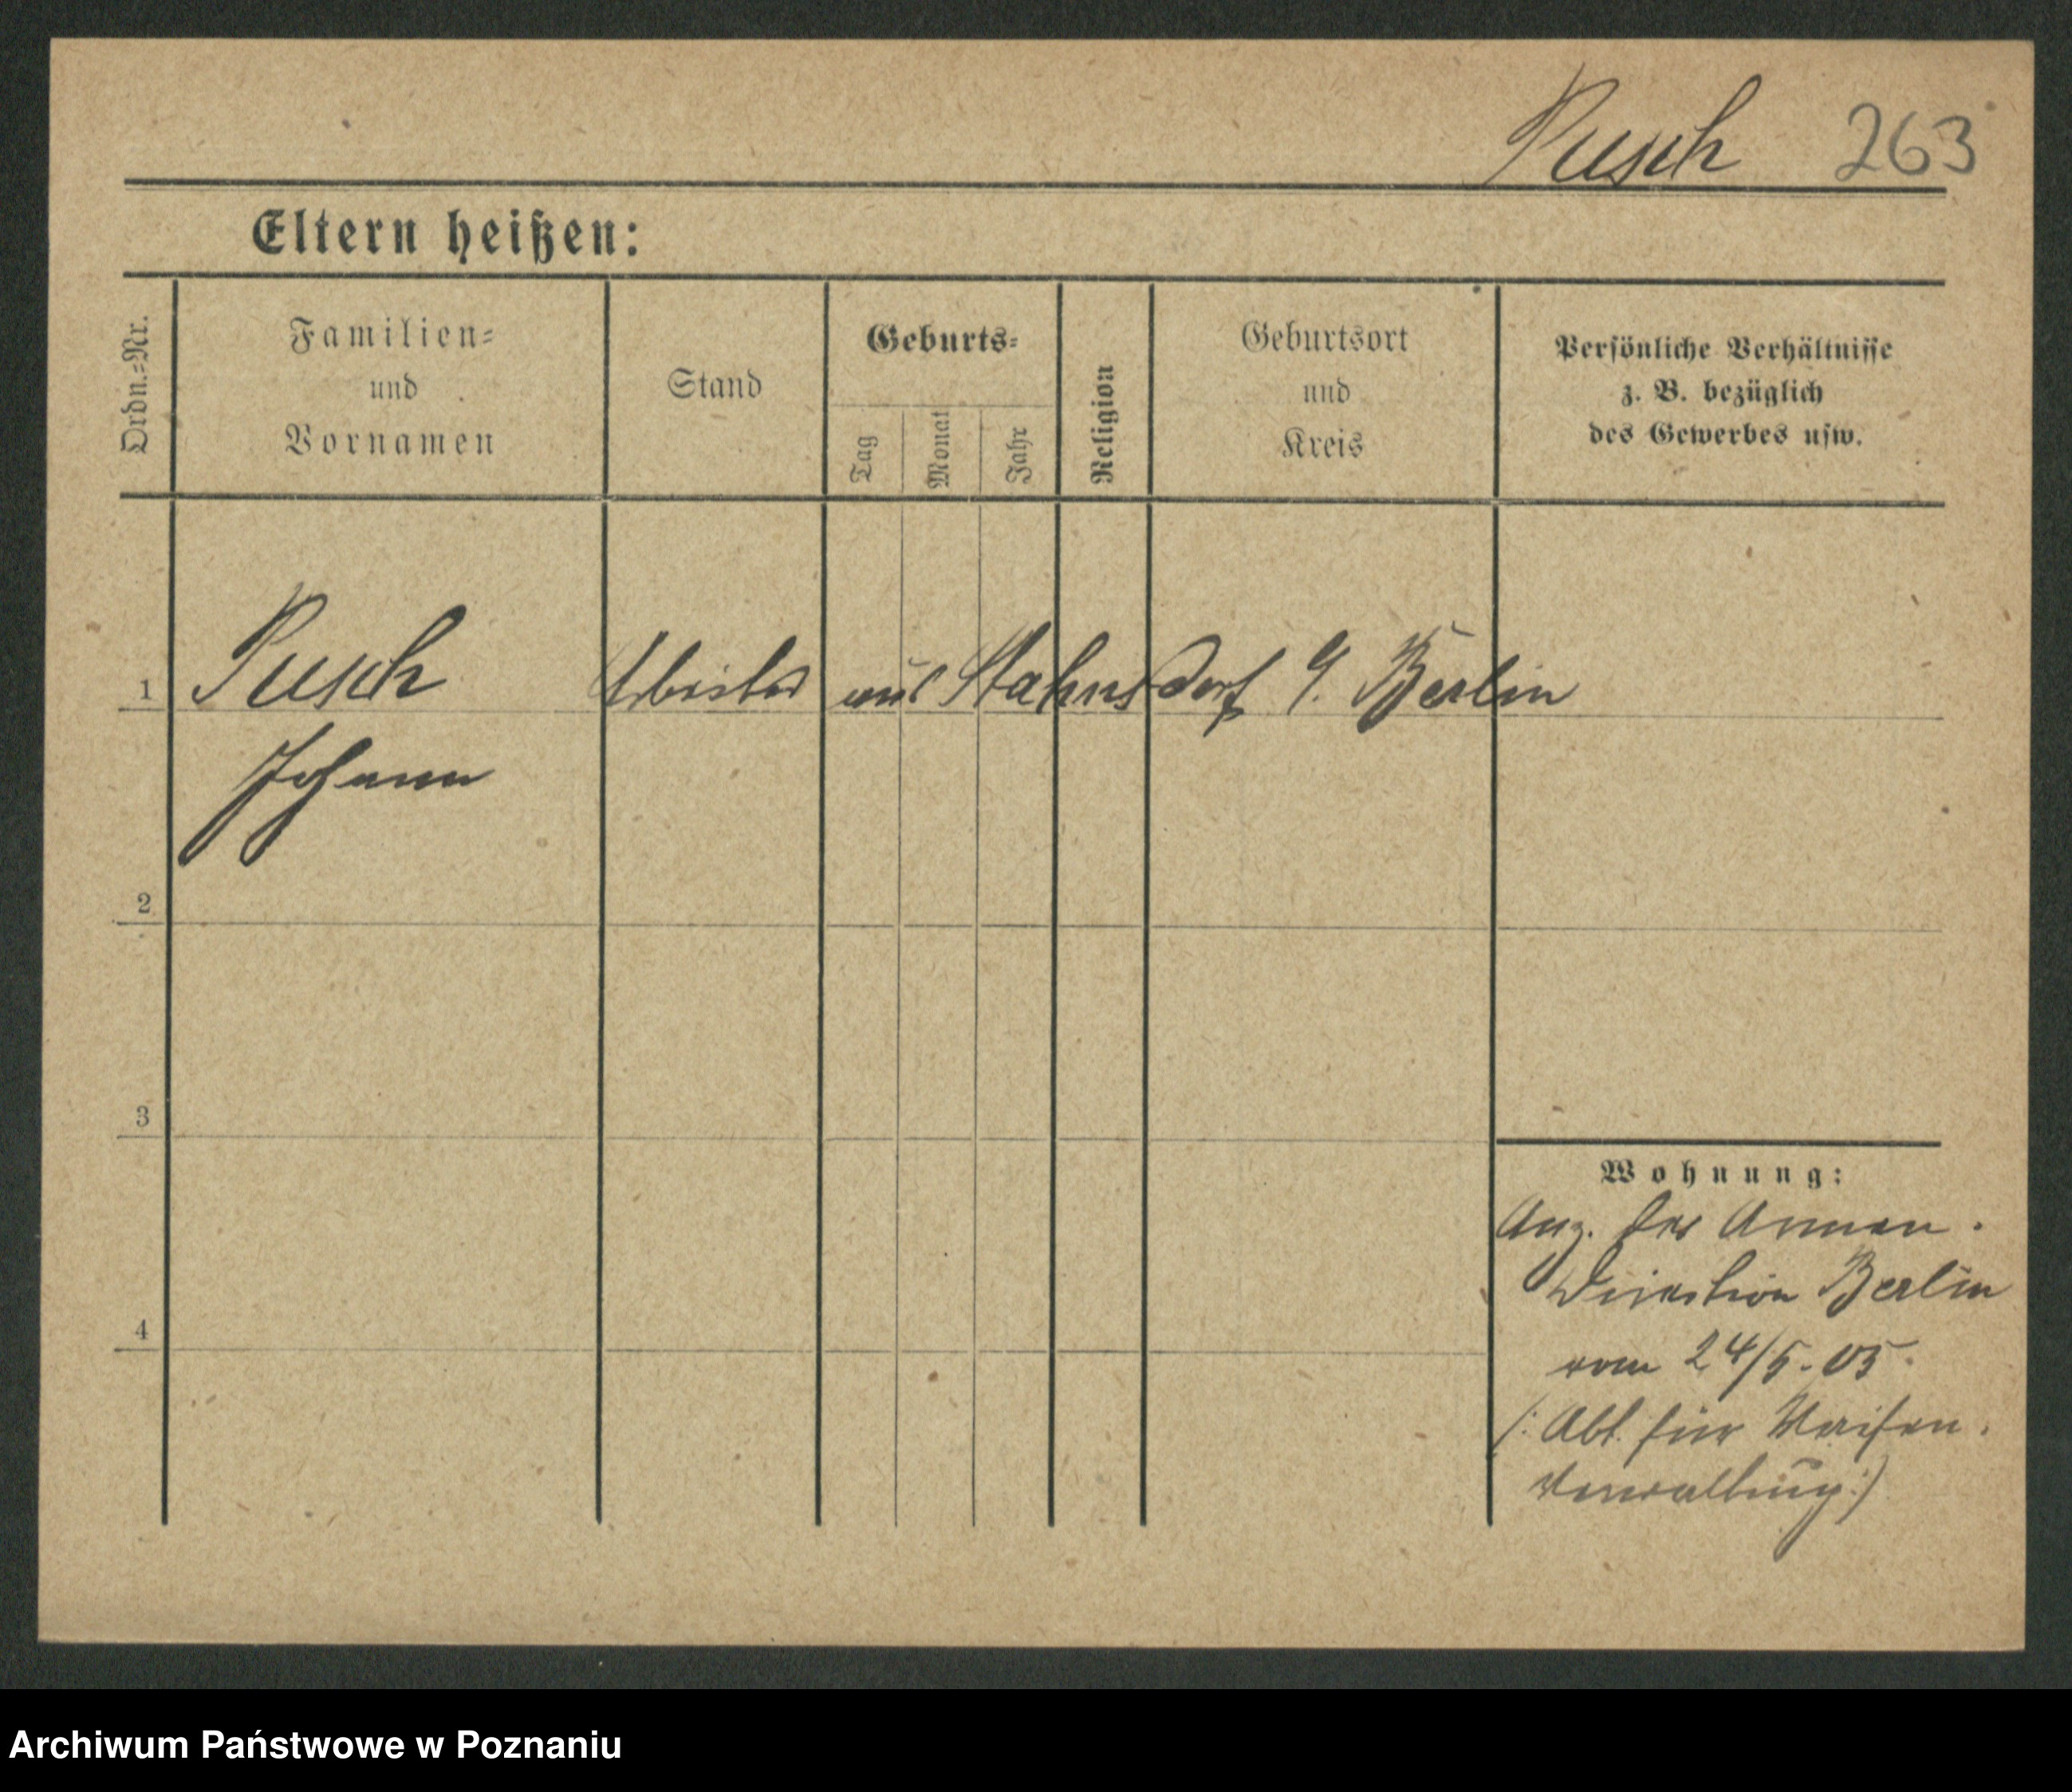 Pusch 263
Eltern heißen:
Ordn.=Nr.
Familien=
und
Vornamen
Stand
Geburts=
Tag
Monat
Jahr
Religion
Geburtsort
und
Kreis
Persönliche Verhältnisse
z. B. bezüglich
des Gewerbes usw.
1 Pusch Arbeiter aus Stahnsdorf b. Berlin
Johann
2
3
4
Wohnung:
Anz. der Armen-
Direktion Berlin
vom 24/5.05.
(: Abt. für Waisen-
verwaltung :)
Archiwum Państwowe w Poznaniu